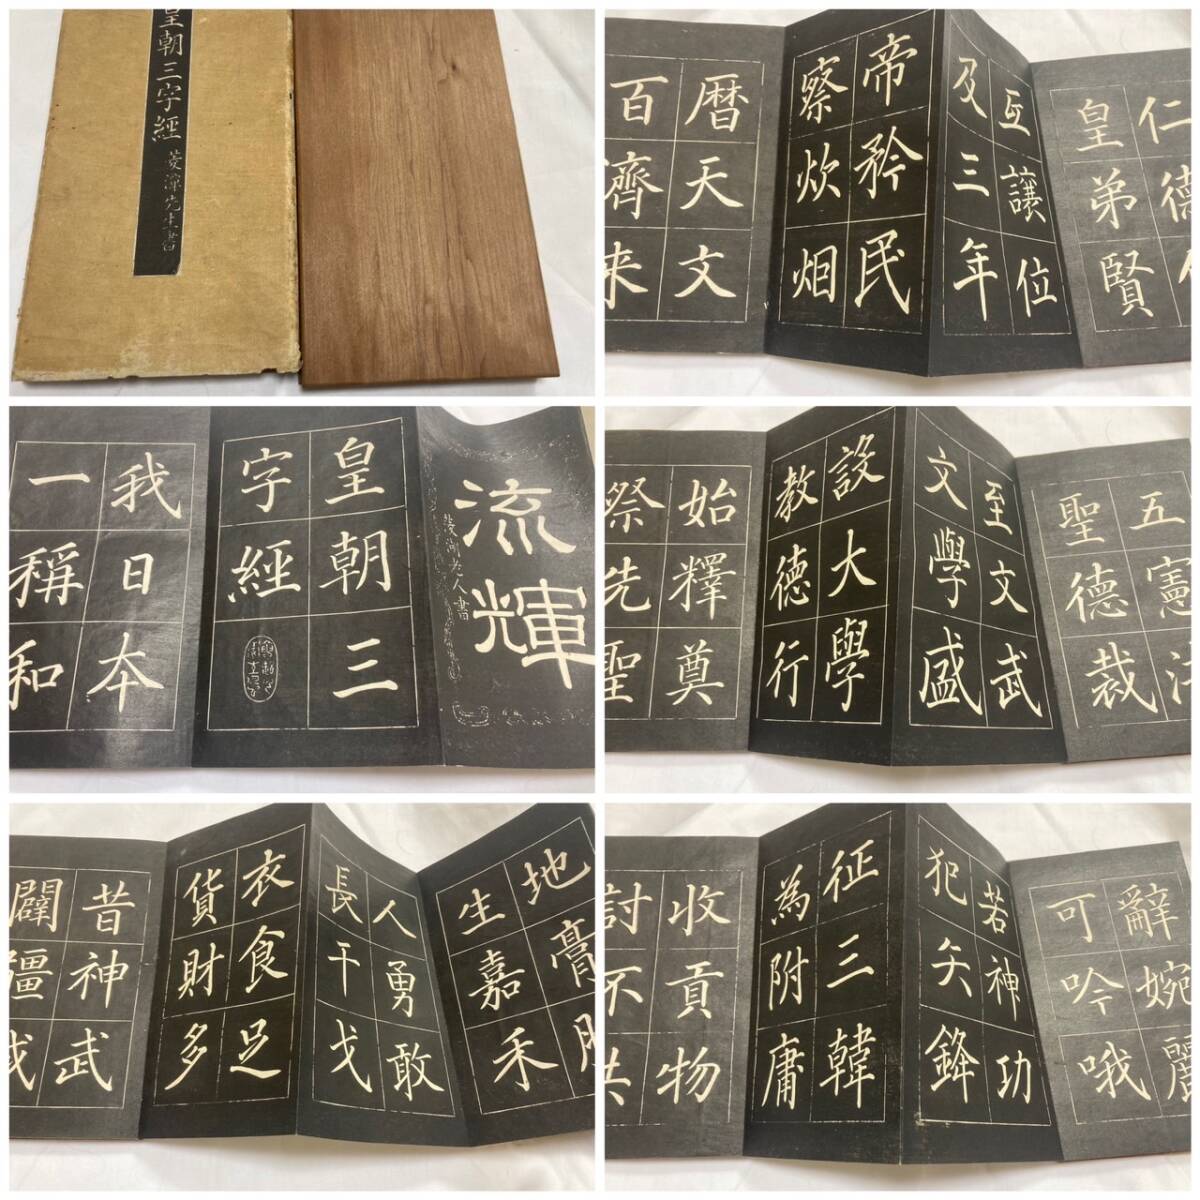 皇朝三字經 菱潭先生書
仁德
皇弟賢
互讓位
及三年
帝矜民
察炊烟
暦天文
百濟来
流輝
菱湖老人書
皇朝三
字經
我日本
一稱和
五憲法
聖德裁
至文武
文學盛
設大學
教德行
始釋奠
祭先聖
地膏
生嘉禾
人勇敢
長干戈
衣食足
貨財多
昔神武
闢疆
辭婉麗
可吟哦
若神功
犯矢鋒
征三韓
為附庸
收貢物
討不共